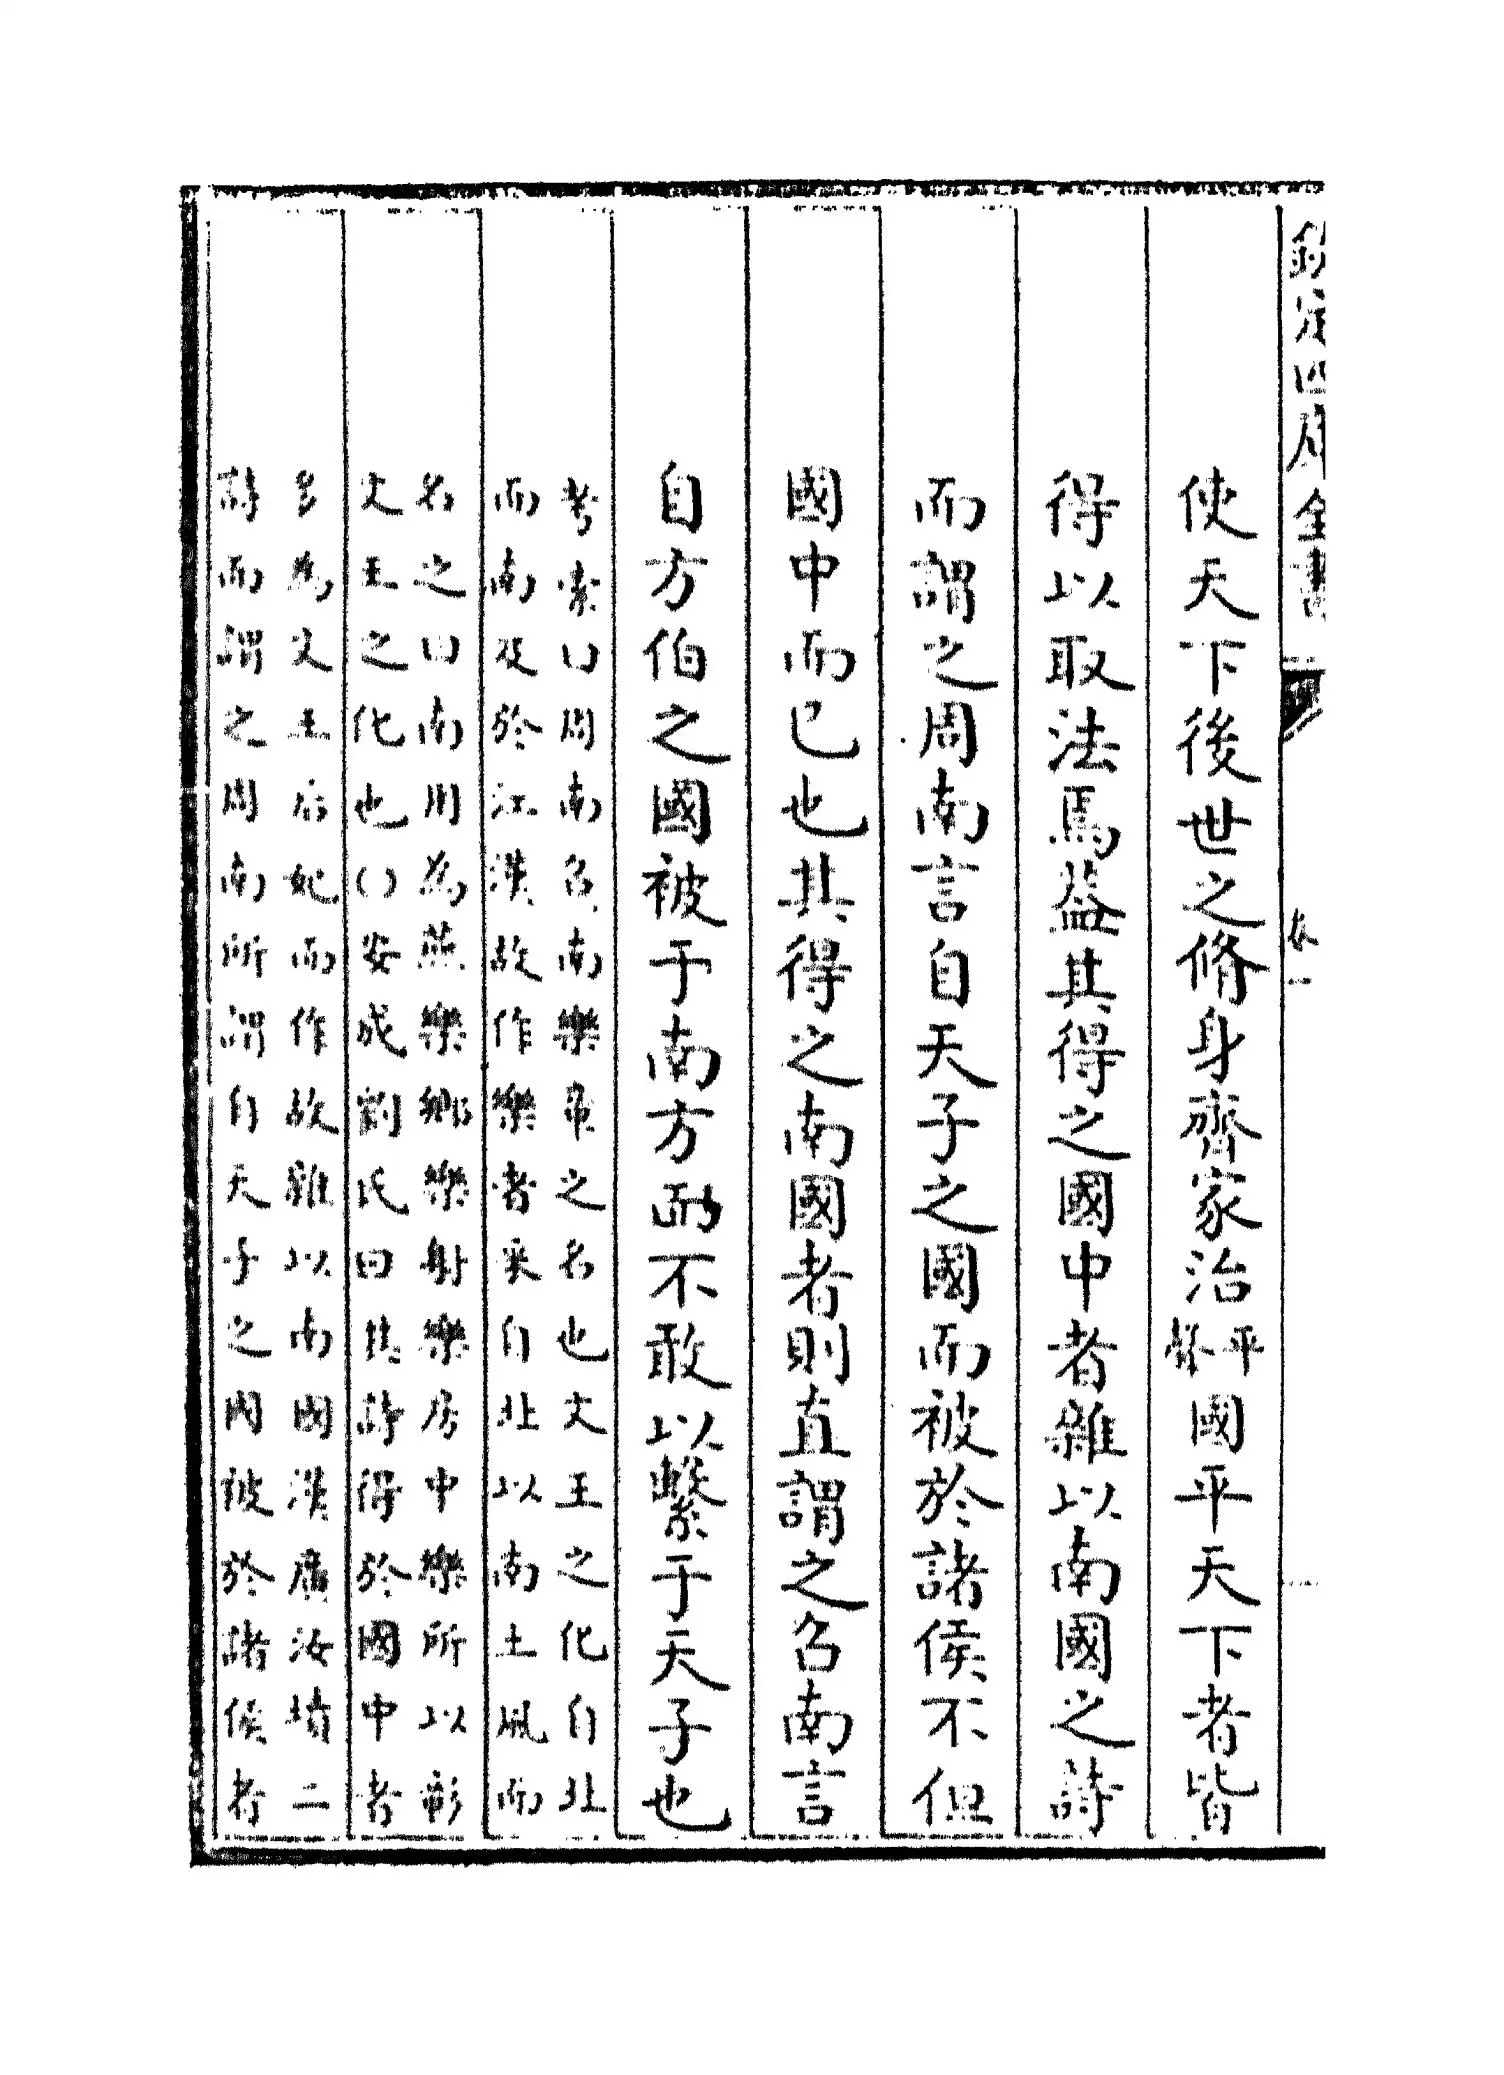 欽定四庫全書
卷一
使天下後世之脩身齊家治平聲國平天下者皆
得以取法焉葢其得之國中者雜以南國之詩
而謂之周南言自天子之國而被於諸侯不但
國中而已也其得之南國者則直謂之召南言
自方伯之國被于南方而不敢以繫于天子也
考索曰周南召南樂章之名也文王之化自北
而南及於江漢故作樂者采自北以南土風而
名之曰南用為燕樂鄉樂射樂房中樂所以彰
文王之化也〇安成劉氏曰其詩得於國中者
多為文王后妃而作故雜以南國漢廣汝墳二
詩而謂之周南所謂自天子之國被於諸侯者